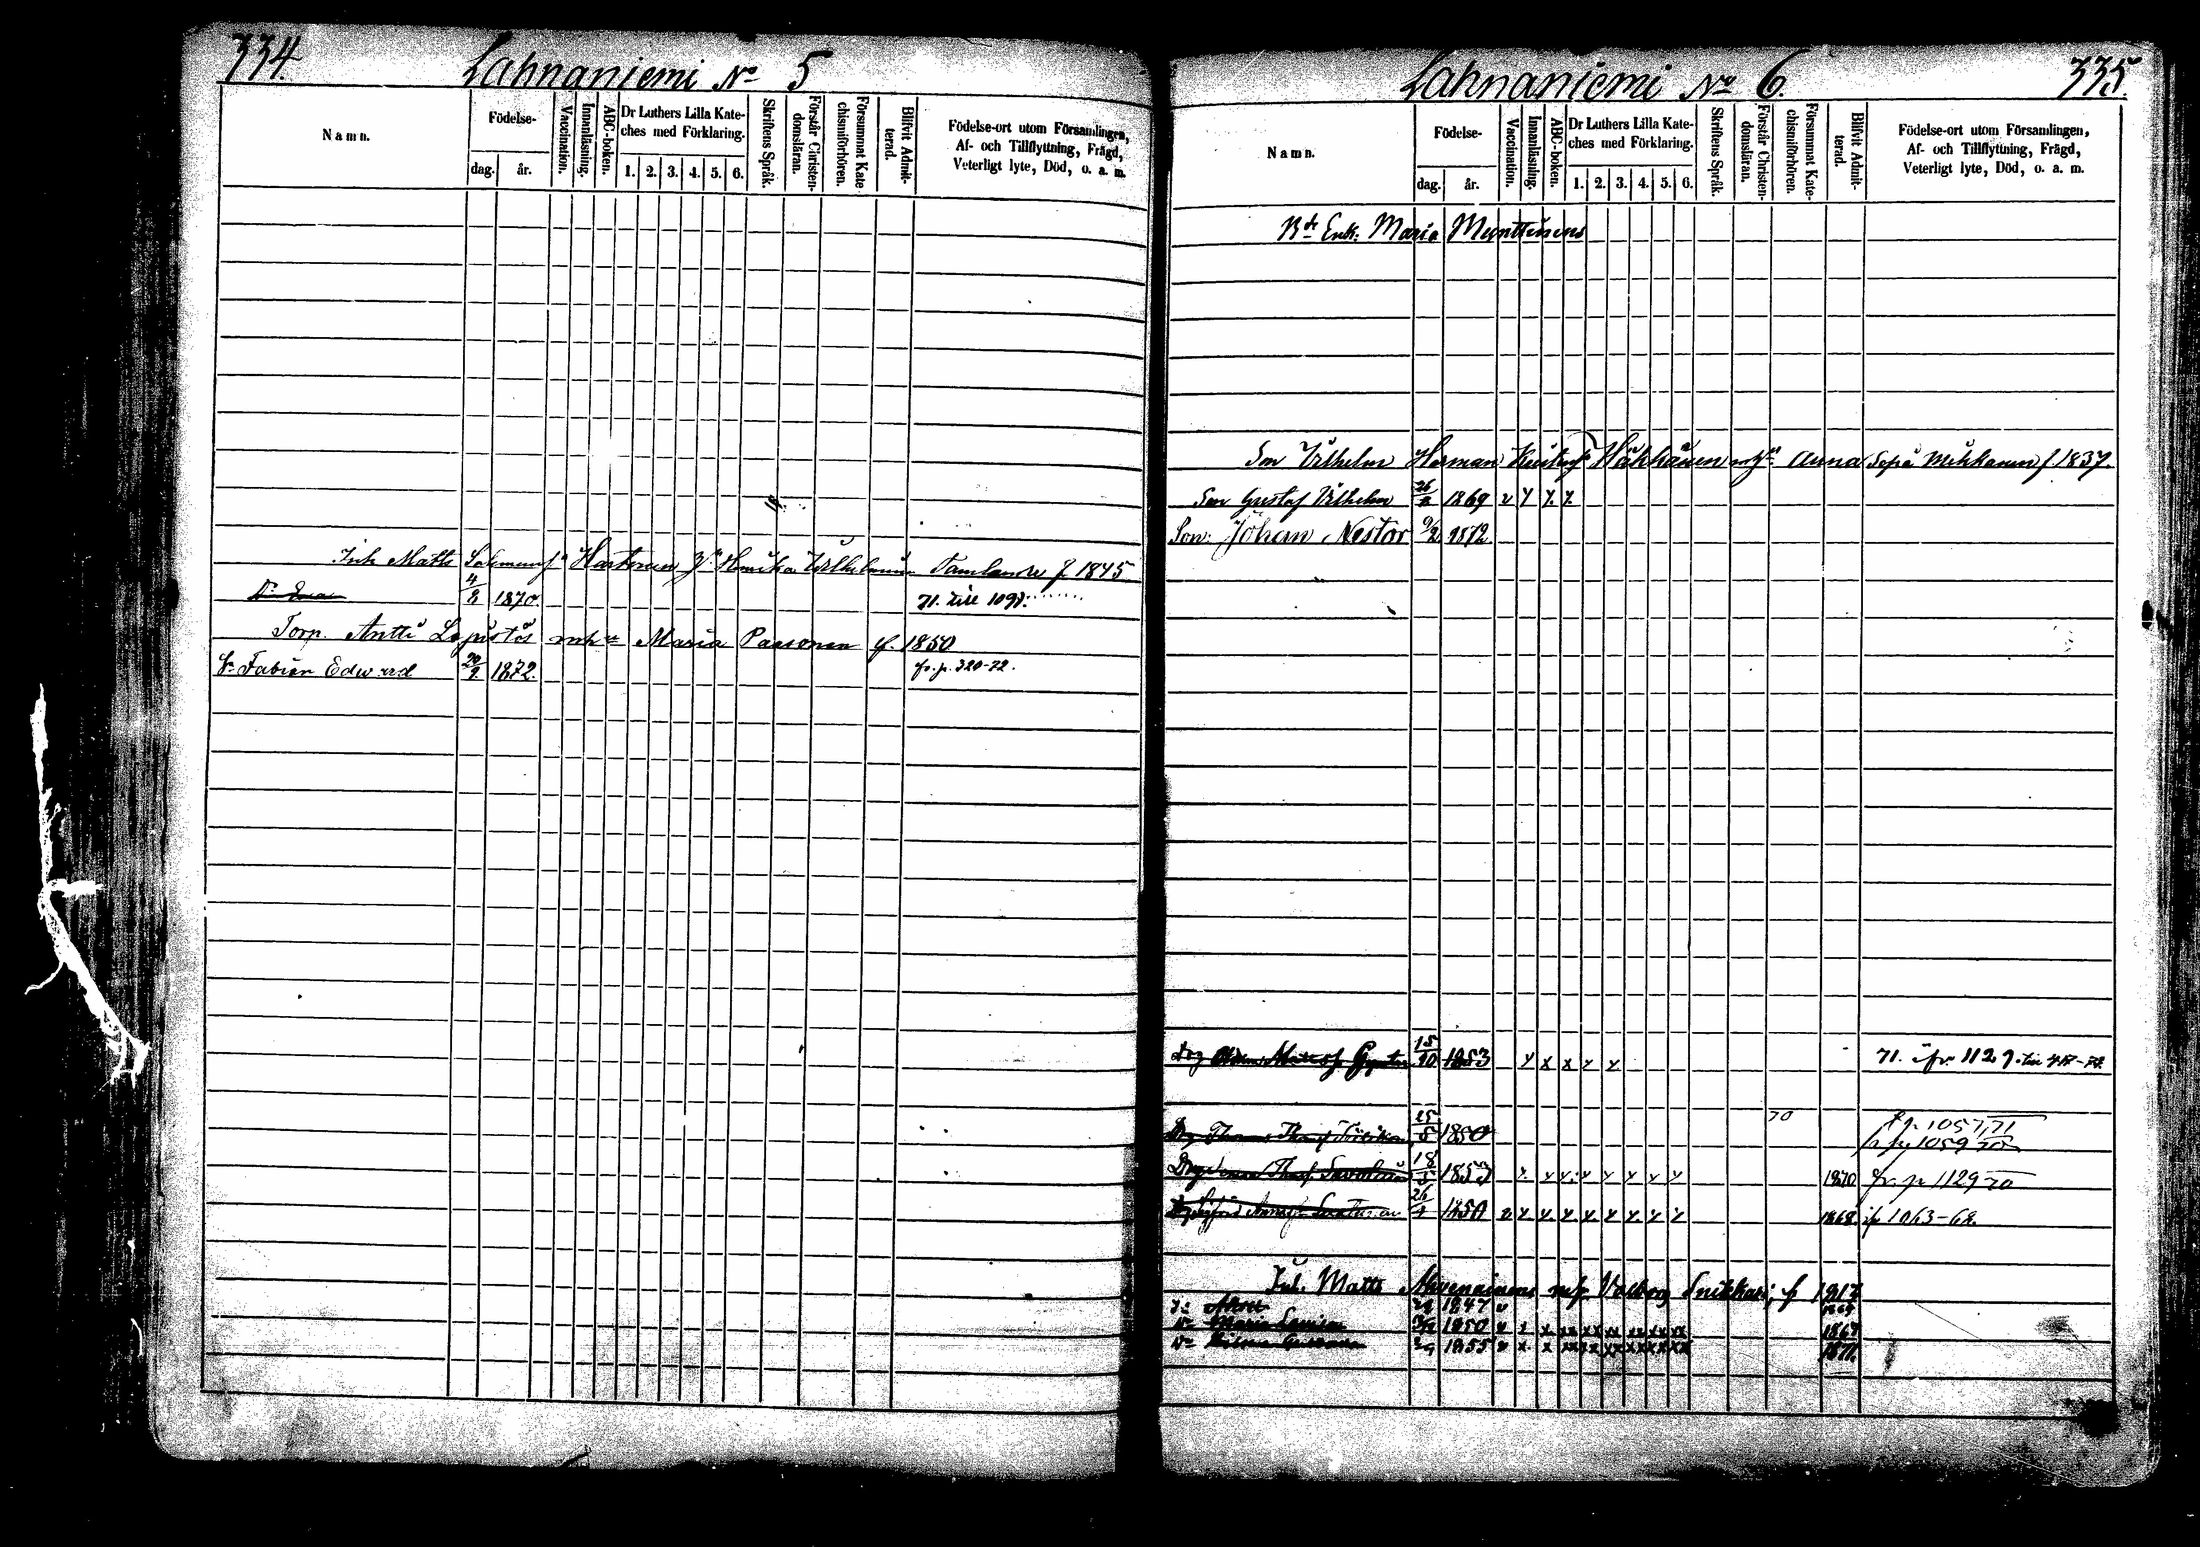 334.
Lahnaniemi No 5
Namn.
Födelse-
dag.
år.
Vaccination.
Innanläsning.
ABC-boken.
Dr Luthers Lilla Kate-
ches med Förklaring.
1. 2. 3. 4. 5. 6.
Skriftens Språk.
Förstår Christen-
domsläran.
Försummat Kate-
chismiförhören.
Blifvit Admit-
terad.
Födelse-ort utom Församlingen,
Af- och Tillflyttning, Frägd,
Veterligt lyte, Död, o. a. m.
Inh Matts Salomonsn Hartonen Henrika Vilhelmina f 1845
Dr Eva 4/8 1870. 71. till 1098.
Torp. Antti Lopistos Maria Paasonen f. 1850
Sr Fabian Edward 20/9 1872. fr. p. 320-72.
335.
Lahnaniemi No 6.
Namn.
Födelse-
dag.
år.
Vaccination.
Innanläsning.
ABC-boken.
Dr Luthers Lilla Kate-
ches med Förklaring.
1. 2. 3. 4. 5. 6.
Skriftens Språk.
Förstår Christen-
domsläran.
Försummat Kate-
chismiförhören.
Blifvit Admit-
terad.
Födelse-ort utom Församlingen,
Af- och Tillflyttning, Frägd,
Veterligt lyte, Död, o. a. m.
Bde Enk: Maria Munttinens
Son Vilhelm Herman Häkkänen Anna Sofia Mikkonen f 1837.
Son Gustaf Vilhelm 26/8 1869
Son: Johan Nestor 9/2 1872
Drg 15/10 1853 71. ifr. 1129
Drg Thomas 25/5 1850 70 f p. 1057,71
fr p. 1059 70
Drg 18/5 1853 1870 fr. p. 1129 70
26 1850 1868. if 1063-68.
Inh. Matts Ahvenainens Valborg Snikkari, f 1817
1847 1864
Dr Maria Lovisa 1850 1867
Dr 1855 1871.